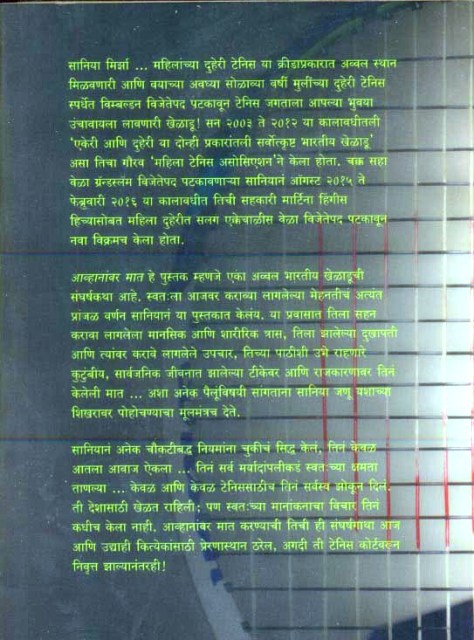 सानिया मिर्झा ... महिलांच्या दुहेरी टेनिस या क्रीडाप्रकारात अव्वल स्थान
मिळवणारी आणि वयाच्या अवघ्या सोळाव्या वर्षी मुलींच्या दुहेरी टेनिस
स्पर्धेत विम्बल्डन विजेतेपद पटकावून टेनिस जगताला आपल्या भुवया
उंचावायला लावणारी खेळाडू! सन २००३ ते २०१२ या कालावधीतली
'एकेरी आणि दुहेरी या दोन्ही प्रकारांतली सर्वोत्कृष्ट भारतीय खेळाडू'
असा तिचा गौरव 'महिला टेनिस असोसिएशन'ने केला होता. चक्क सहा
वेळा ग्रॅन्डस्लॅम विजेतेपद पटकावणाऱ्या सानियानं ऑगस्ट २०१५ ते
फेब्रुवारी २०१६ या कालावधीत तिची सहकारी मार्टिना हिंगीस
हिच्यासोबत महिला दुहेरीत सलग एकेचाळीस वेळा विजेतेपद पटकावून
नवा विक्रमच केला होता.
आव्हानांवर मात हे पुस्तक म्हणजे एका अव्वल भारतीय खेळाडूची
संघर्षकथा आहे. स्वतःला आजवर कराव्या लागलेल्या मेहनतीचं अत्यंत
प्रांजळ वर्णन सानियानं या पुस्तकात केलंय. या प्रवासात तिला सहन
करावा लागलेला मानसिक आणि शारीरिक त्रास, तिला झालेल्या दुखापती
आणि त्यांवर करावे लागलेले उपचार, तिच्या पाठीशी उभे राहणारे
कुटुंबीय, सार्वजनिक जीवनात झालेल्या टीकेवर आणि राजकारणावर तिनं
केलेली मात ... अशा अनेक पैलूंविषयी सांगताना सानिया जणू यशाच्या
शिखरावर पोहोचण्याचा मूलमंत्रच देते.
सानियानं अनेक चौकटीबद्ध नियमांना चुकीचं सिद्ध केलं. तिनं केवळ
आतला आवाज ऐकला ... तिनं सर्व मर्यादांपलीकडं स्वतःच्या क्षमता
ताणल्या ... केवळ आणि केवळ टेनिससाठीच तिनं सर्वस्व झोकून दिलं.
ती देशासाठी खेळत राहिली; पण स्वतःच्या मानांकनाचा विचार तिनं
कधीच केला नाही. आव्हानांवर मात करण्याची तिची ही संघर्षगाथा आज
आणि उद्याही कित्येकांसाठी प्रेरणास्थान ठरेल, अगदी ती टेनिस कोर्टवरून
निवृत्त झाल्यानंतरही!